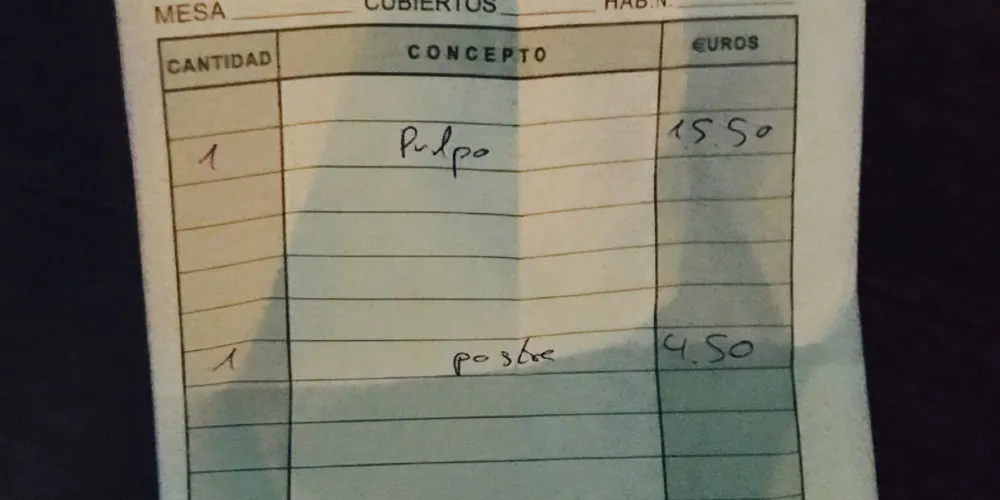 MESA CUBIERTOS HAB.N.
CANTIDAD CONCEPTO €UROS
1 Pulpo 15.50
1 postre 4.50